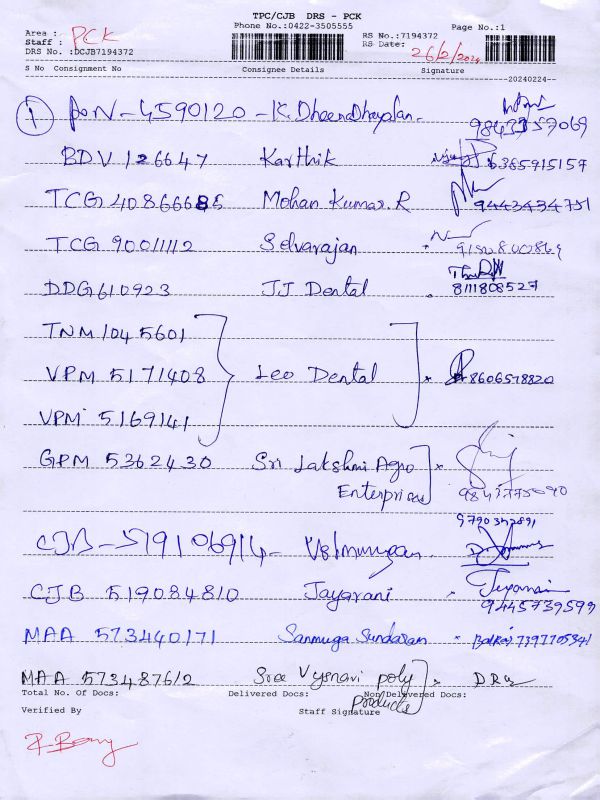 TPC/CJB DRS - PCK
Phone No.:0422-3505555 Page No.:1
Area : PCK RS No.:7194372
Staff : RS Date: 26/2/2024
DRS No. :DCJB7194372
S No Consignment No Consignee Details Signature
20240224
1 PON-4590120 - K. Dheendhayalan. 9843357069
BDV 126647 Karthik 6365915157
TCG 40866685 Mohan Kumar. R 9443434751
TCG 90011112 Selvarajan
DDG610923 JJ Dental 8111808527
TNM 1045601
VPM 5171408 Leo Dental 8606578820
VPM 5169141
GPM 5362430 Sri Lakshmi Agro
Enterprises
CJB-519106914-
CJB 519084810 Jayarani 9445739599
MAA 573440171 Sanmuga Sundaran 7397705341
MAA 573487612 Sree Vysnavi poly
Products
Total No. Of Docs: Delivered Docs: Non Delivered Docs:
Verified By Staff Signature